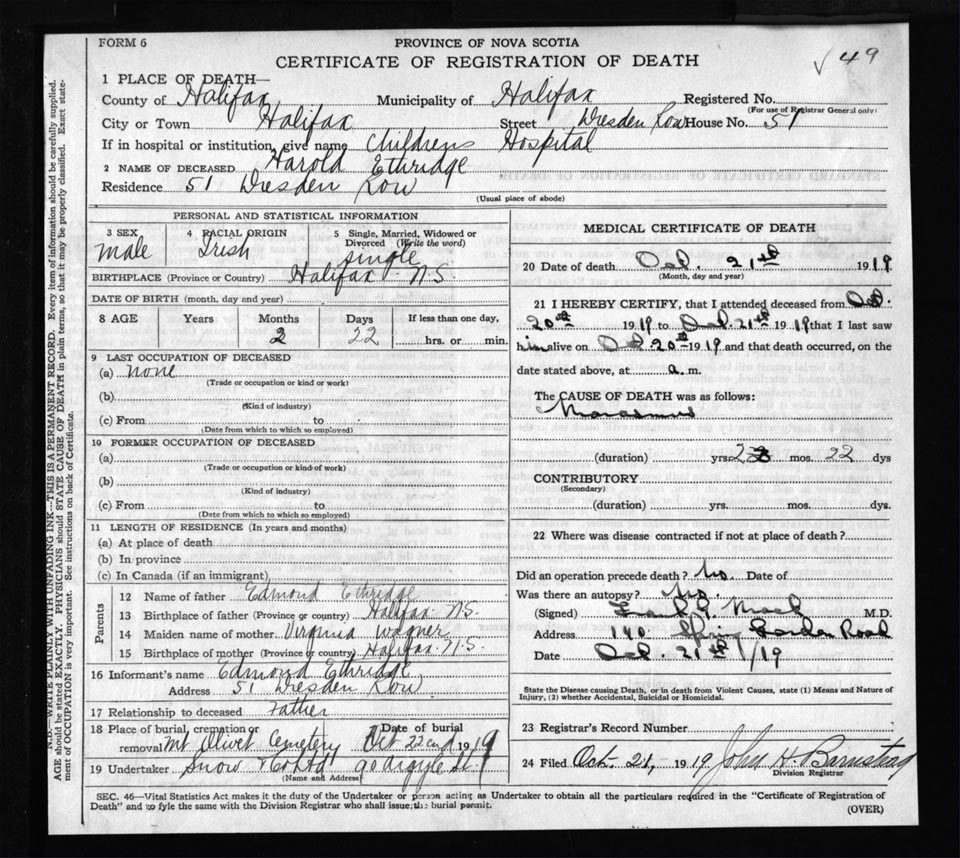 FORM 6
PROVINCE OF NOVA SCOTIA
CERTIFICATE OF REGISTRATION OF DEATH
√ 49
1 PLACE OF DEATH—
County of Halifax Municipality of Halifax Registered No.
(For use of Registrar General only)
City or Town Halifax Street Dresden Row House No. 51
If in hospital or institution, give name Childrens Hospital
2 NAME OF DECEASED Harold Ethridge
Residence 51 Dresden Row
(Usual place of abode)
PERSONAL AND STATISTICAL INFORMATION
3 SEX 4 RACIAL ORIGIN 5 Single, Married, Widowed or Divorced (Write the word)
Male Irish Single
BIRTHPLACE (Province or Country) Halifax N.S.
DATE OF BIRTH (month, day and year)
8 AGE Years Months Days If less than one day,
2 22 hrs. or min.
9 LAST OCCUPATION OF DECEASED
(a) none
(Trade or occupation or kind or work)
(b)
(Kind of industry)
(c) From to
(Date from which to which so employed)
10 FORMER OCCUPATION OF DECEASED
(a)
(Trade or occupation or kind of work)
(b)
(Kind of industry)
(c) From to
(Date from which to which so employed)
11 LENGTH OF RESIDENCE (In years and months)
(a) At place of death
(b) In province
(c) In Canada (if an immigrant)
Parents
12 Name of father Edmond Ethridge
13 Birthplace of father (Province or country) Halifax N.S.
14 Maiden name of mother Virginia Wagner
15 Birthplace of mother (Province or country) Halifax N.S.
16 Informant's name Edmond Ethridge
Address 51 Dresden Row
17 Relationship to deceased Father
18 Place of burial, cremation or removal Mt Olivet Cemetery Date of burial Oct 22nd 1919
19 Undertaker Snow & Co Ltd 90 Argyle St.
(Name and Address)
MEDICAL CERTIFICATE OF DEATH
20 Date of death Oct. 21st 1919
(Month, day and year)
21 I HEREBY CERTIFY, that I attended deceased from Oct.
20th 1919 to Oct. 21st 1919 that I last saw
him alive on Oct. 20th 1919 and that death occurred, on the
date stated above, at a.m.
The CAUSE OF DEATH was as follows:
Marasmus
(duration) yrs. 2 mos. 22 dys
CONTRIBUTORY
(Secondary)
(duration) yrs. mos. dys.
22 Where was disease contracted if not at place of death?
Did an operation precede death? No. Date of
Was there an autopsy? No.
(Signed) Frank V. Mack M.D.
Address 140 Spring Garden Road
Date Oct. 21st /19
State the Disease causing Death, or in death from Violent Causes, state (1) Means and Nature of
Injury, (2) whether Accidental, Suicidal or Homicidal.
23 Registrar's Record Number
24 Filed Oct. 21, 1919. John H. Barnstead
Division Registrar
SEC. 46—Vital Statistics Act makes it the duty of the Undertaker or person acting as Undertaker to obtain all the particulars required in the "Certificate of Registration of
Death" and to fyle the same with the Division Registrar who shall issue the burial permit.
(OVER)
N.B.—WRITE PLAINLY WITH UNFADING INK—THIS IS A PERMANENT RECORD. Every item of information should be carefully supplied.
AGE should be stated EXACTLY. PHYSICIANS should STATE CAUSE OF DEATH in plain terms, so that it may be properly classified. Exact state-
ment of OCCUPATION is very important. See instructions on back of Certificate.